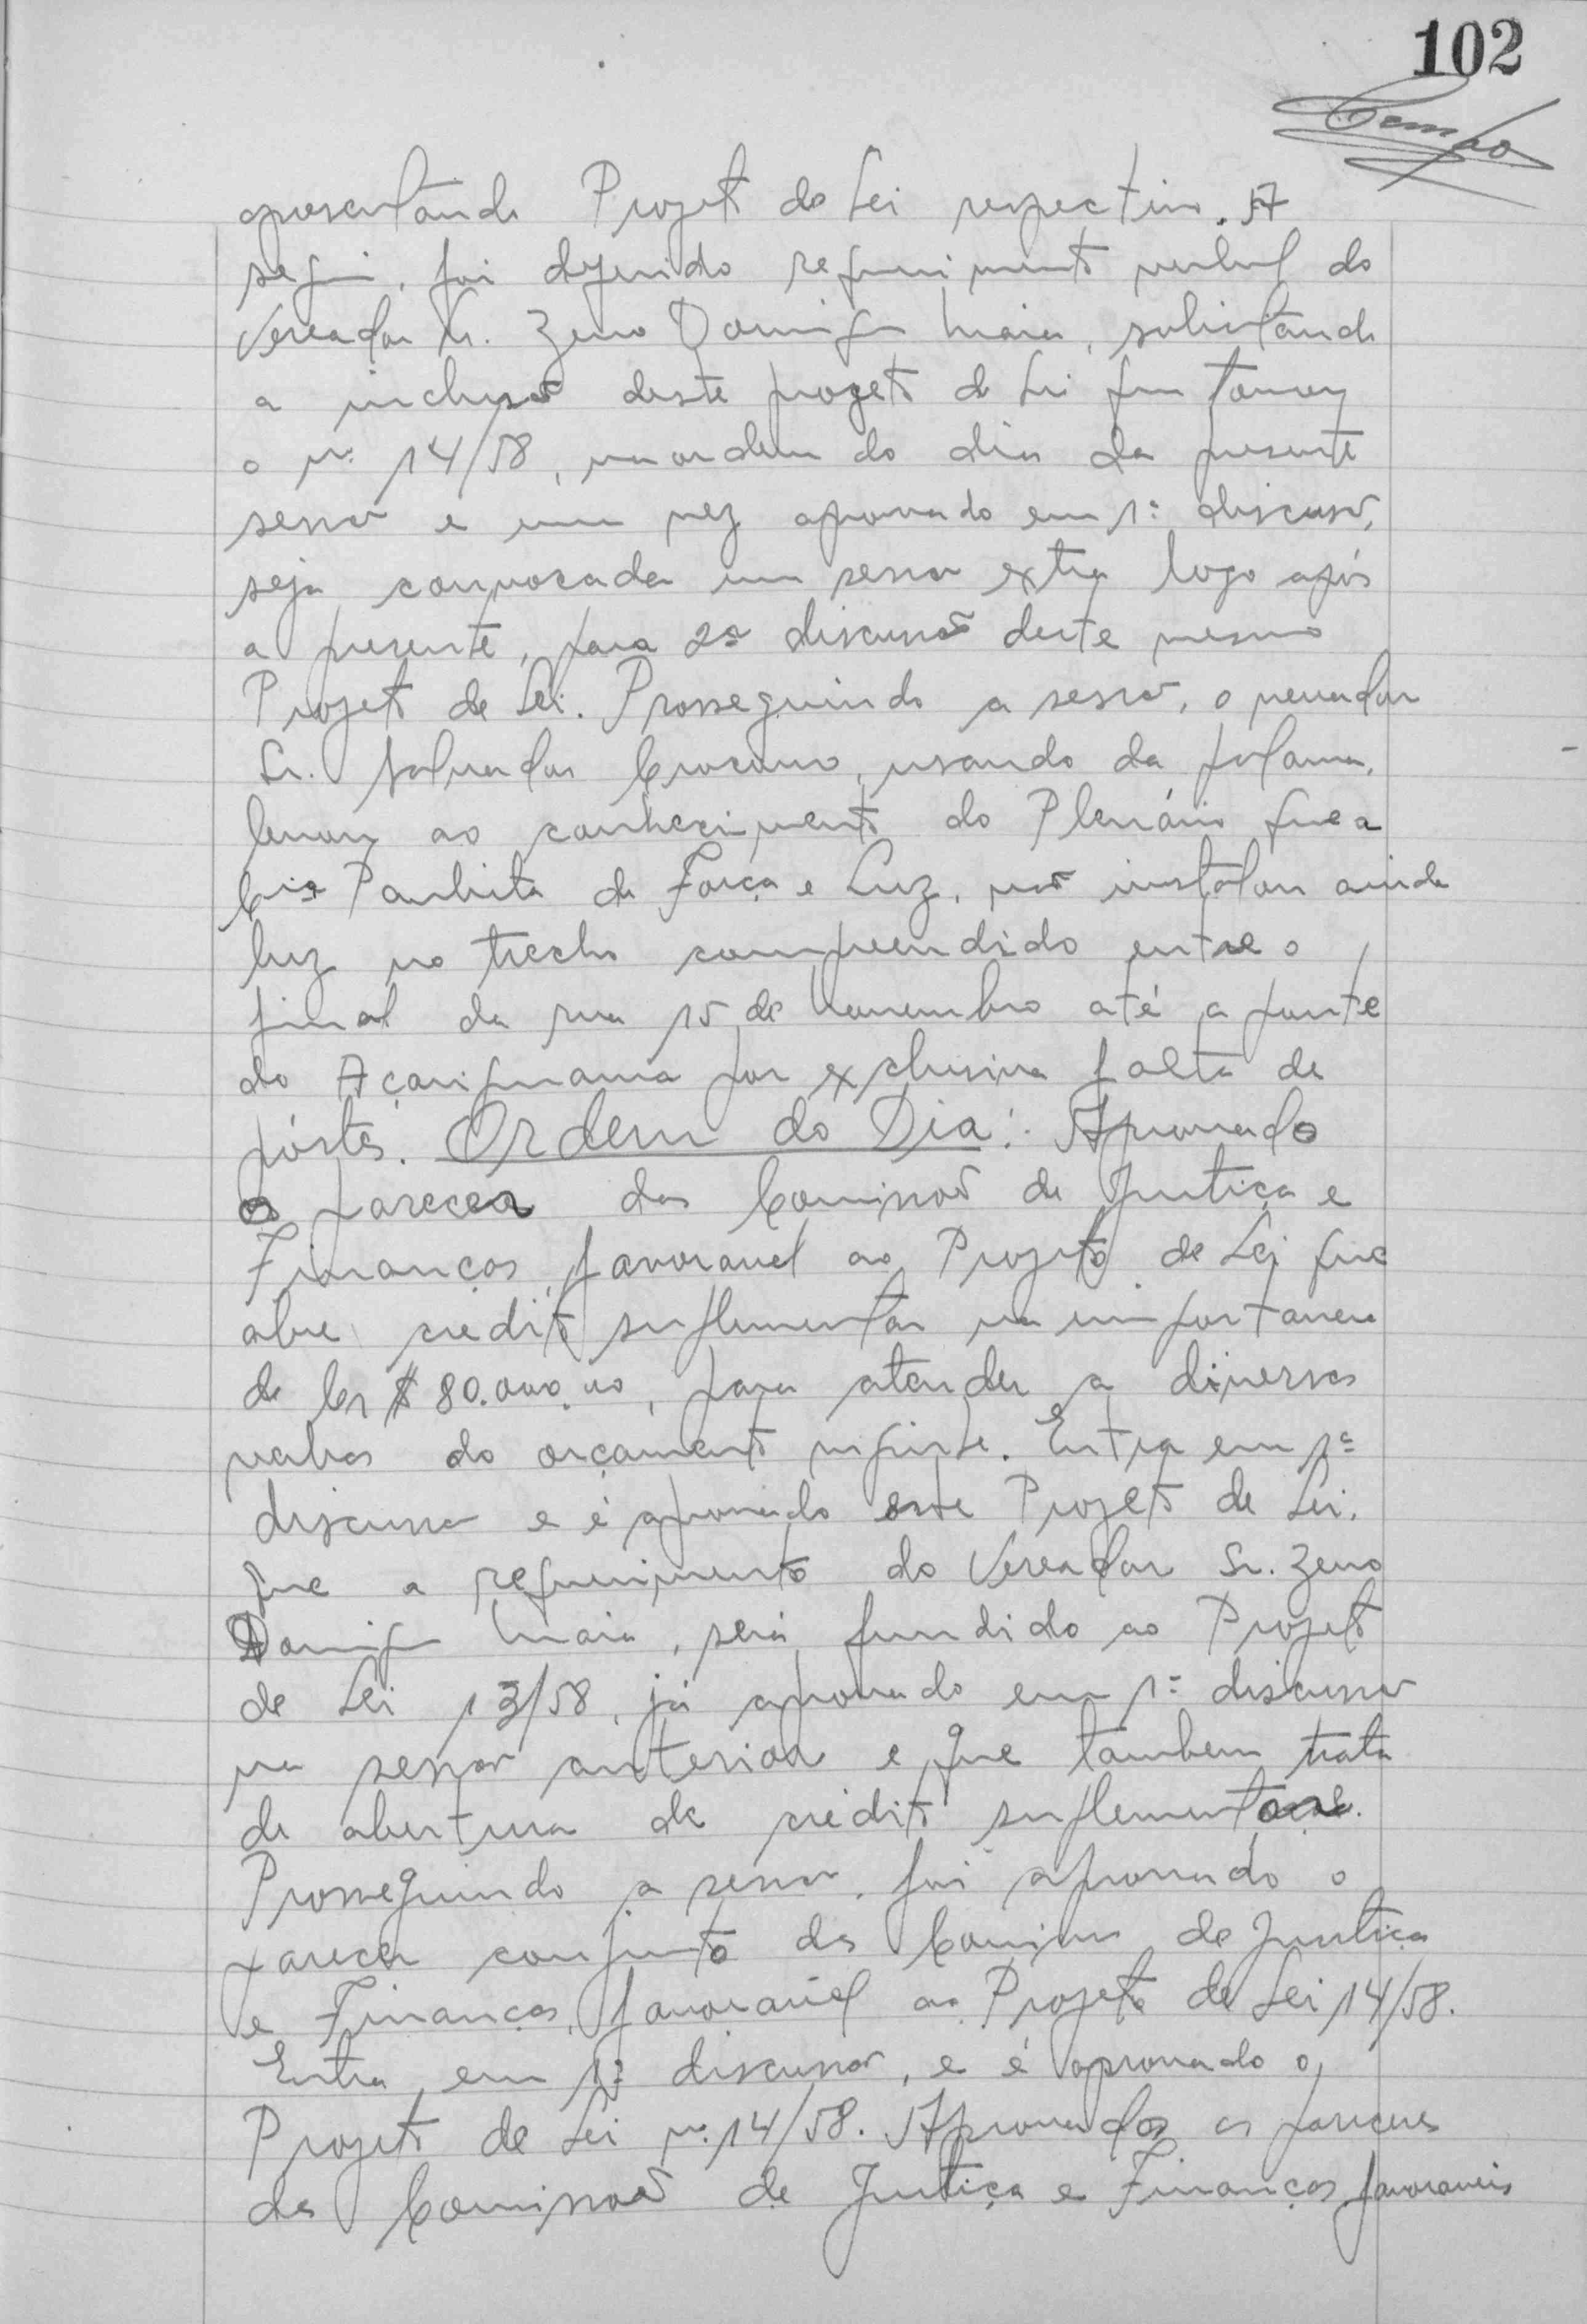 102
apresentando Projeto de Lei respectivo. A
seguir, foi deferido requerimento verbal do
Vereador Sr. Zeno Domingu Maia, solicitando
a inclusão deste projeto de Lei que tomou
o nº 14/58, na ordem do dia da presente
sessão e uma vez aprovado em 1ª discussão,
seja convocada uma sessão extra logo após
a presente, para 2ª discussão deste mesmo
Projeto de Lei. Prosseguindo a sessão, o vereador
Sr. Salvador usando da palavra,
levou ao conhecimento do Plenário que a
Cia Paulista de Força e Luz, não instalou ainda
luz no trecho compreendido entre o
final da rua 15 de Novembro até a ponte
do Açariguama por exclusiva falta de
póstes. Ordem do Dia: Aprovado
o parecer das Comissões de Justiça e
Finanças, favoravel ao Projeto de Lei que
abre crédito suplementar na importancia
de Cr$ 80.000,00, para atender a diversas
verbas do orçamento vigente. Entra em 1ª
discussão e é aprovado este Projeto de Lei.
que a requerimento do Vereador Sr. Zeno
Domingu Maia, será fundido ao Projeto
de Lei 13/58, já aprovado em 1ª discussão
na sessão anterior e que tambem trata
de abertura de crédito suplementar.
Prosseguindo a sessão, foi aprovado o
parecer conjunto das Comissões de Justiça
e Finanças, favoravel ao Projeto de Lei 14/58.
Entra em 1ª discussão, e é aprovado o
Projeto de Lei nº 14/58. Aprovados os pareceres
das Comissões de Justiça e Finanças favoraveis